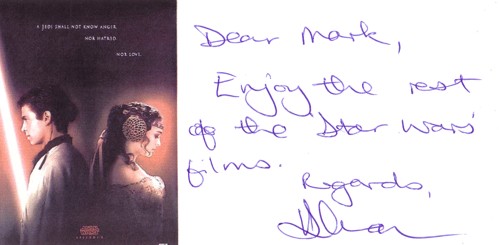 A JEDI SHALL NOT KNOW ANGER.
NOR HATRED.
NOR LOVE.
Dear Mark,
Enjoy the rest
of the Star Wars'
films.
Regards,